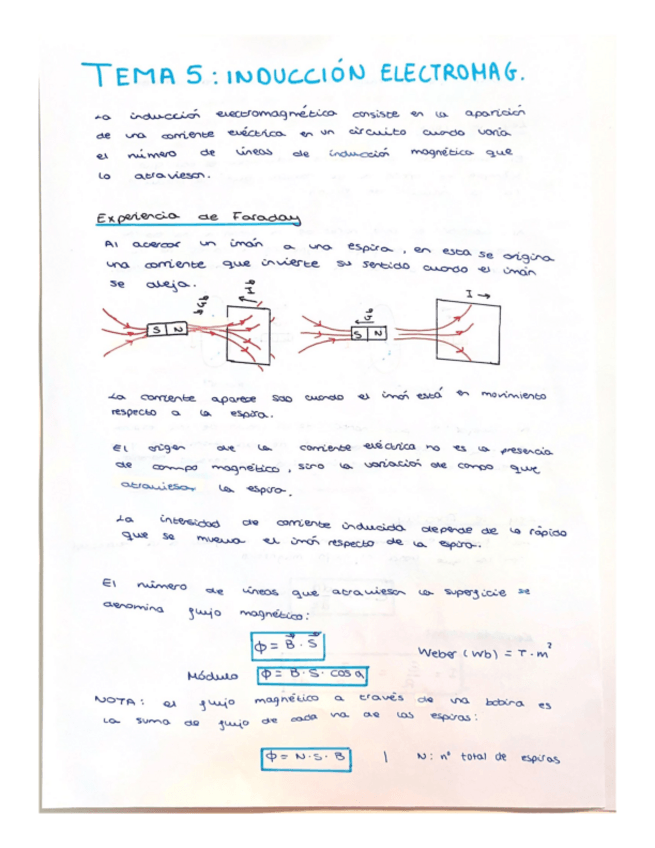 TEMA 5: INDUCCIÓN ELECTROMAG.
La inducción electromagnética consiste en la aparición
de una corriente eléctrica en un circuito cuando varía
el número de líneas de inducción magnética que
lo atraviesan.
Experiencia de Faraday
Al acercar un imán a una espira, en esta se origina
una corriente que invierte su sentido cuando el imán
se aleja.
I
I →
S N
S N
La corriente aparece solo cuando el imán está en movimiento
respecto a la espira.
El origen de la corriente eléctrica no es la presencia
de campo magnético, sino la variación de campo que
atraviesan la espira.
La intensidad de corriente inducida depende de lo rápido
que se mueva el imán respecto de la espira.
El número de líneas que atraviesan la superficie se
denomina flujo magnético:
ϕ = B⃗ · S⃗
Weber (Wb) = T · m²
Módulo ϕ = B · S · cos α
NOTA: el flujo magnético a través de una bobina es
la suma de flujo de cada una de las espiras:
ϕ = N · S · B | N: nº total de espiras